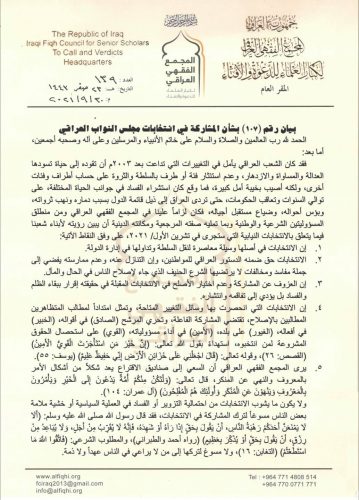 The Republic of Iraq
Iraqi Fiqh Council for Senior Scholars
To Call and Verdicts
Headquarters
المجمع
الفقهي
العراقي
جمهورية العراق
المقر العام
العدد: ١٣٩
٢٣ صفر ١٤٤٣
٢٠٢١/٩/٣٠
بيان رقم (١٠٧) بشأن المشاركة في انتخابات مجلس النواب العراقي
الحمد لله رب العالمين والصلاة والسلام على خاتم الأنبياء والمرسلين وعلى آله وصحبه أجمعين،
أما بعد:
فقد كان الشعب العراقي يأمل في التغييرات التي تداعت بعد ٢٠٠٣م أن تقوده إلى حياة تسودها
العدالة والمساواة والازدهار، وعدم استئثار فئة أو طرف بالسلطة والثروة على حساب أطراف وفئات
أخرى، ولكنه أصيب بخيبة أمل كبيرة، فما وقع كان استشراء الفساد في جوانب الحياة المختلفة، على
توالي السنوات وتعاقب الحكومات، حتى تردى العراق إلى ذيل قائمة الدول بسبب دماره، ونهب ثرواته،
وبؤس أحواله، وضياع مستقبل أجياله، فكان لزاماً علينا في المجمع الفقهي العراقي ومن منطلق
المسؤوليتين الشرعية والوطنية وبما تمليه صفته المرجعية ومكانته الدينية أن يبين رؤيته لأبناء شعبنا
فيما يتعلق بالانتخابات النيابية التي ستجرى في تشرين الأول/ ٢٠٢١، على وفق النقاط الآتية:
١. إن الانتخابات في أصلها وسيلة معاصرة لنقل السلطة وتداولها في إدارة الدولة.
٢. إن الانتخابات حق ضمنه الدستور العراقي للمواطنين، وإن التنازل عنه، وعدم ممارسته يفضي إلى
جملة مفاسد ومخالفات لا يرتضيها الشرع الحنيف الذي جاء لإصلاح الناس في الحال والمآل.
٣. إن العزوف عن المشاركة وعدم اختيار الأصلح في الانتخابات المقبلة في حقيقته إقرار ببقاء الظلم
والفساد بل يؤدي إلى تفاقمه وانتشاره.
٤. إن الانتخابات التي انحصرت بها وسائل التغيير المتاحة، وتمثل امتداداً لمطالب المتظاهرين
المطالبين بالإصلاح؛ تقتضي المشاركة الفاعلة، وتحري المرشح (الصادق) في أقواله، (الخبير)
في أفعاله، (الغيور) على بلده (الأمين) في تحمل مسؤولياته، (القوي) على استحصال الحقوق
المشروعة لمن انتخبوه، استهداء بقول الله تعالى: (إِنَّ خَيْرَ مَنِ اسْتَأْجَرْتَ الْقَوِيُّ الْأَمِينُ)
(القصص: ٢٦)، وقوله تعالى: (قَالَ اجْعَلْنِي عَلَى خَزَائِنِ الْأَرْضِ إِنِّي حَفِيظٌ عَلِيمٌ) (يوسف: ٥٥).
٥. يرى المجمع الفقهي العراقي أن السعي إلى صناديق الاقتراع يعد شكلاً من أشكال الأمر
بالمعروف والنهي عن المنكر، قال تعالى: (وَلْتَكُنْ مِنْكُمْ أُمَّةٌ يَدْعُونَ إِلَى الْخَيْرِ وَيَأْمُرُونَ
بِالْمَعْرُوفِ وَيَنْهَوْنَ عَنِ الْمُنْكَرِ وَأُولَئِكَ هُمُ الْمُفْلِحُونَ) (آل عمران: ١٠٤).
ولا يكون ما يشوب الانتخابات من احتمالية التزوير أو الفساد في العملية السياسية أو خشية ملامة
بعض الناس مسوغاً لترك المشاركة في الانتخابات، فقد قال رسول الله صلى الله عليه وسلم: (ألا
لا يمنعن أحدكم رهبة الناس، أن يقول بحق إذا رآه أو شهده، فإنه لا يقرب من أجل، ولا يباعد من
رزق، أن يقول بحق أو يذكر بعظيم) (رواه أحمد والطبراني)، والمطلوب الشرعي: (فَاتَّقُوا اللَّهَ مَا
اسْتَطَعْتُمْ) (التغابن: ١٦)، ولا مسوغ لتركها إلى من لا يراعي في الناس عهداً ولا ذمة.
www.alfiqhi.org
foiraq2013@gmail.com
info@alfiqhi.org
Tel : +964 771 4808 514
+964 770 0771 771